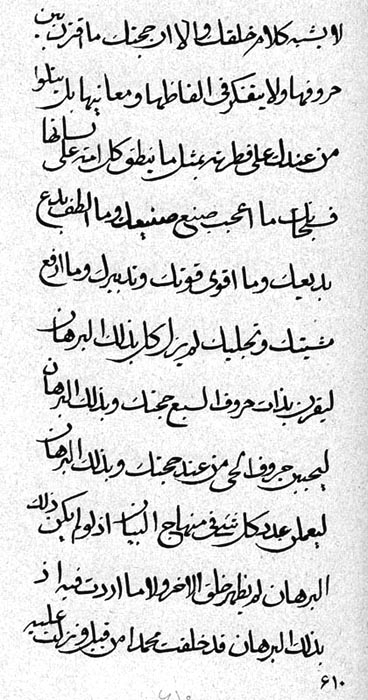 لا يشبه كلام خلقك والا ان حجتك ما قرن بين
حروفها ولا يتفكر فى الفاظها و معانيها بل يتلوا
من عندك على فطرته بمثل ما ينطق كل امة على لسانها
فسبحانك ما اعجب صنيع صنيعك وما الطف بدع
بديعك وما اقوى قوتك وتدبيرك وما ارفع
مشيتك وتجليك لم يزل كل بذلك البرهان
ليقرن بذات حروف السبع حجتك وبذلك البرهان
ليحيين حروف الحى من عند حجتك وبذلك البرهان
ليعملن عدد كل شئ فى منهاج البيان اذ لو لم يكن ذلك
البرهان لم يظهر خلق الاخر ولا ما اردت فيه اذ
بذلك البرهان قد خلقت محمدا من قبل ونزلت عليه
۶۱۰